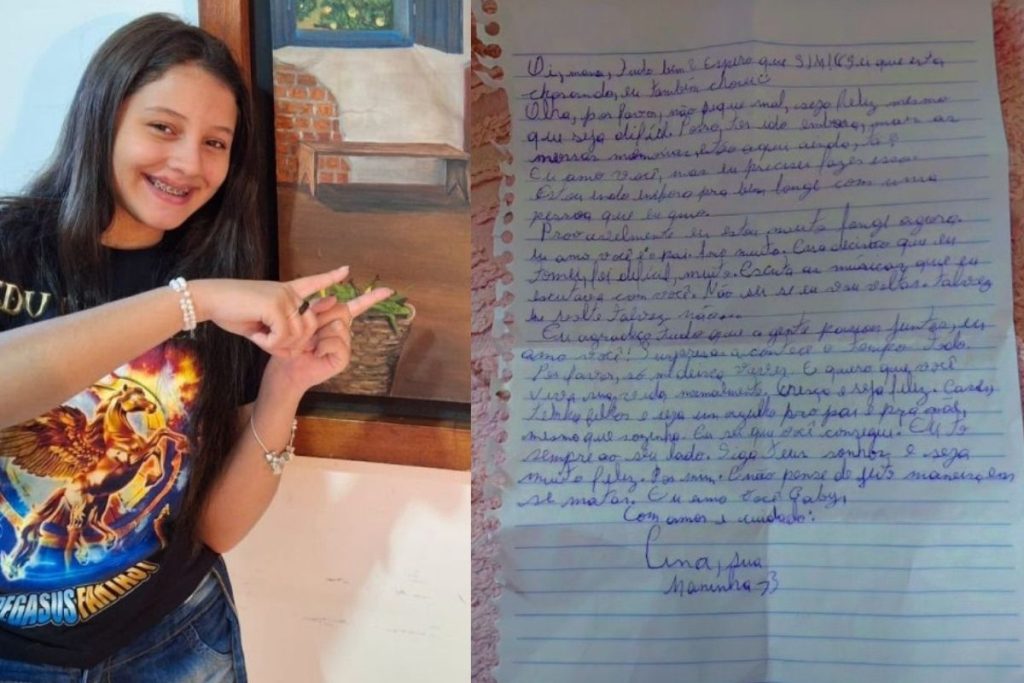 EDU
PEGASUS FANTASY
Oi, mana, tudo bem? Espero que sim que esta
chorando, eu também chorei
Olha, por favor, não fique mal, seja feliz mesmo
que seja difícil. Posso ter ido embora, mas as
nossas memórias estão aqui ainda, tá?
Eu amo você, mas eu precisei fazer isso.
Estou indo embora pra bem longe com uma
pessoa que eu quero.
Provavelmente eu estou muito longe agora
Eu amo você e o pai muito. Essa decisão que eu
tomei, foi difícil, muito. Escuta as músicas que eu
escutava com você. Não sei se eu vou voltar. Talvez
eu volte talvez não
Eu agradeço tudo que a gente passou juntas, eu
amo você! acontece o tempo todo.
Por favor, só me desça E quero que você
viva sua vida normalmente, cresça e seja feliz. Case,
tenha filhos e seja um orgulho pro pai e pra mãe,
mesmo que sozinha. Eu sei que você consegue. Eu to
sempre ao seu lado. Siga seus sonhos e seja
muito feliz. Por mim. E não pense de jeito maneira em
se matar. Eu amo você Gaby,
Com amor e cuidado:
sua
Maninha <3